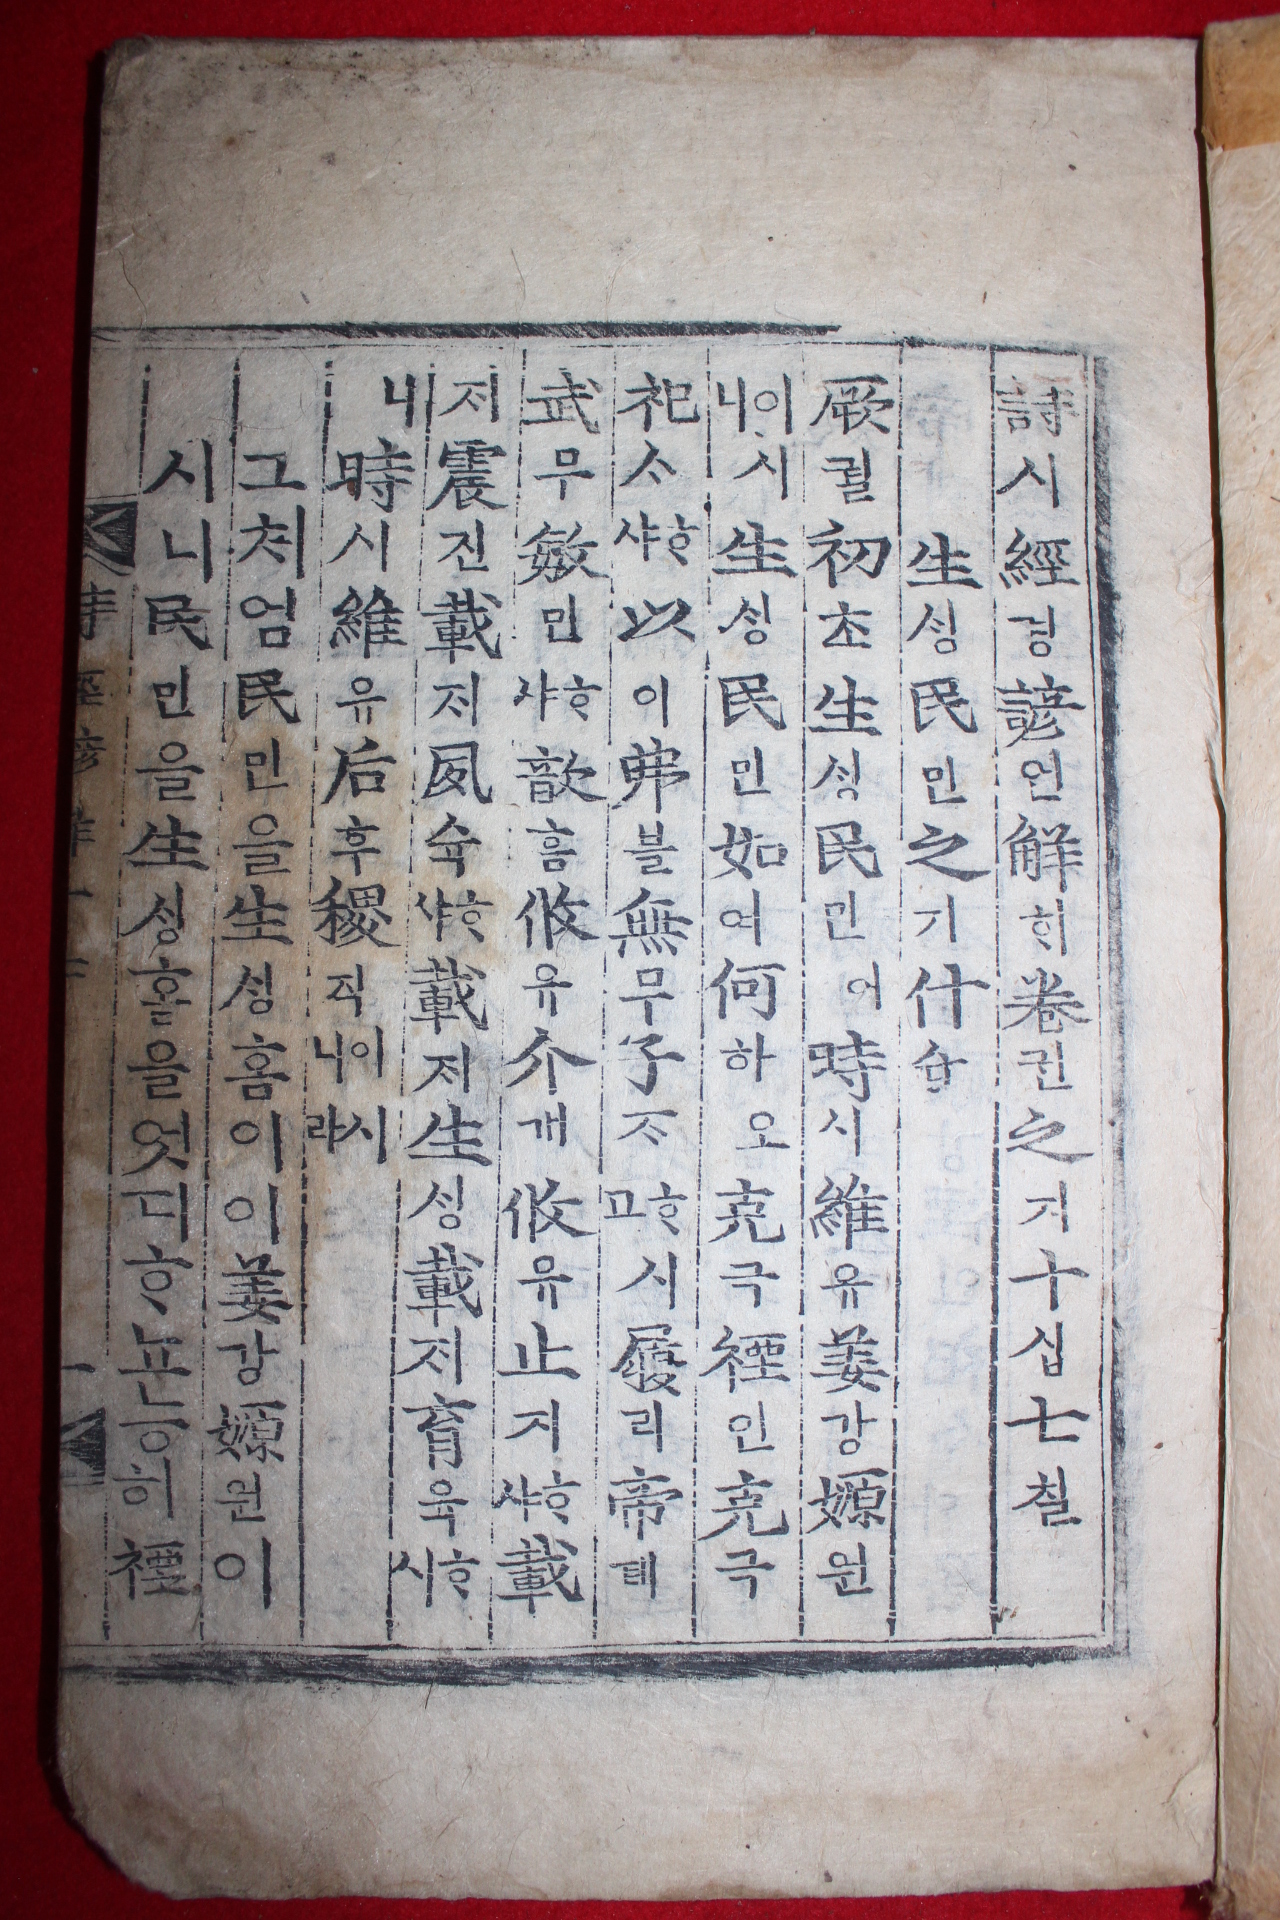 詩시經경諺언解ᄒᆡ卷권之지十십七칠
生ᄉᆡᆼ民민之지什습
厥궐初초生ᄉᆡᆼ民민이時시維유姜강嫄원
이시니生ᄉᆡᆼ民민如여何하오克극禋인克극
祀ᄉᆞᄒᆞ샤以이弗블無무子ᄌᆞᄒᆞ시고履리帝뎨
武무敏민ᄒᆞ샤歆흠攸유介개攸유止지ᄒᆞ샤載
ᄌᆡ震진載ᄌᆡ夙슉ᄒᆞ샤載ᄌᆡ生ᄉᆡᆼ載ᄌᆡ育육ᄒᆞ시
니時시維유后후稷직이시니라
그처엄民민을生ᄉᆡᆼ홈이이姜강嫄원이
시니民민을生ᄉᆡᆼ홈을엇디ᄒᆞ뇨능히禋